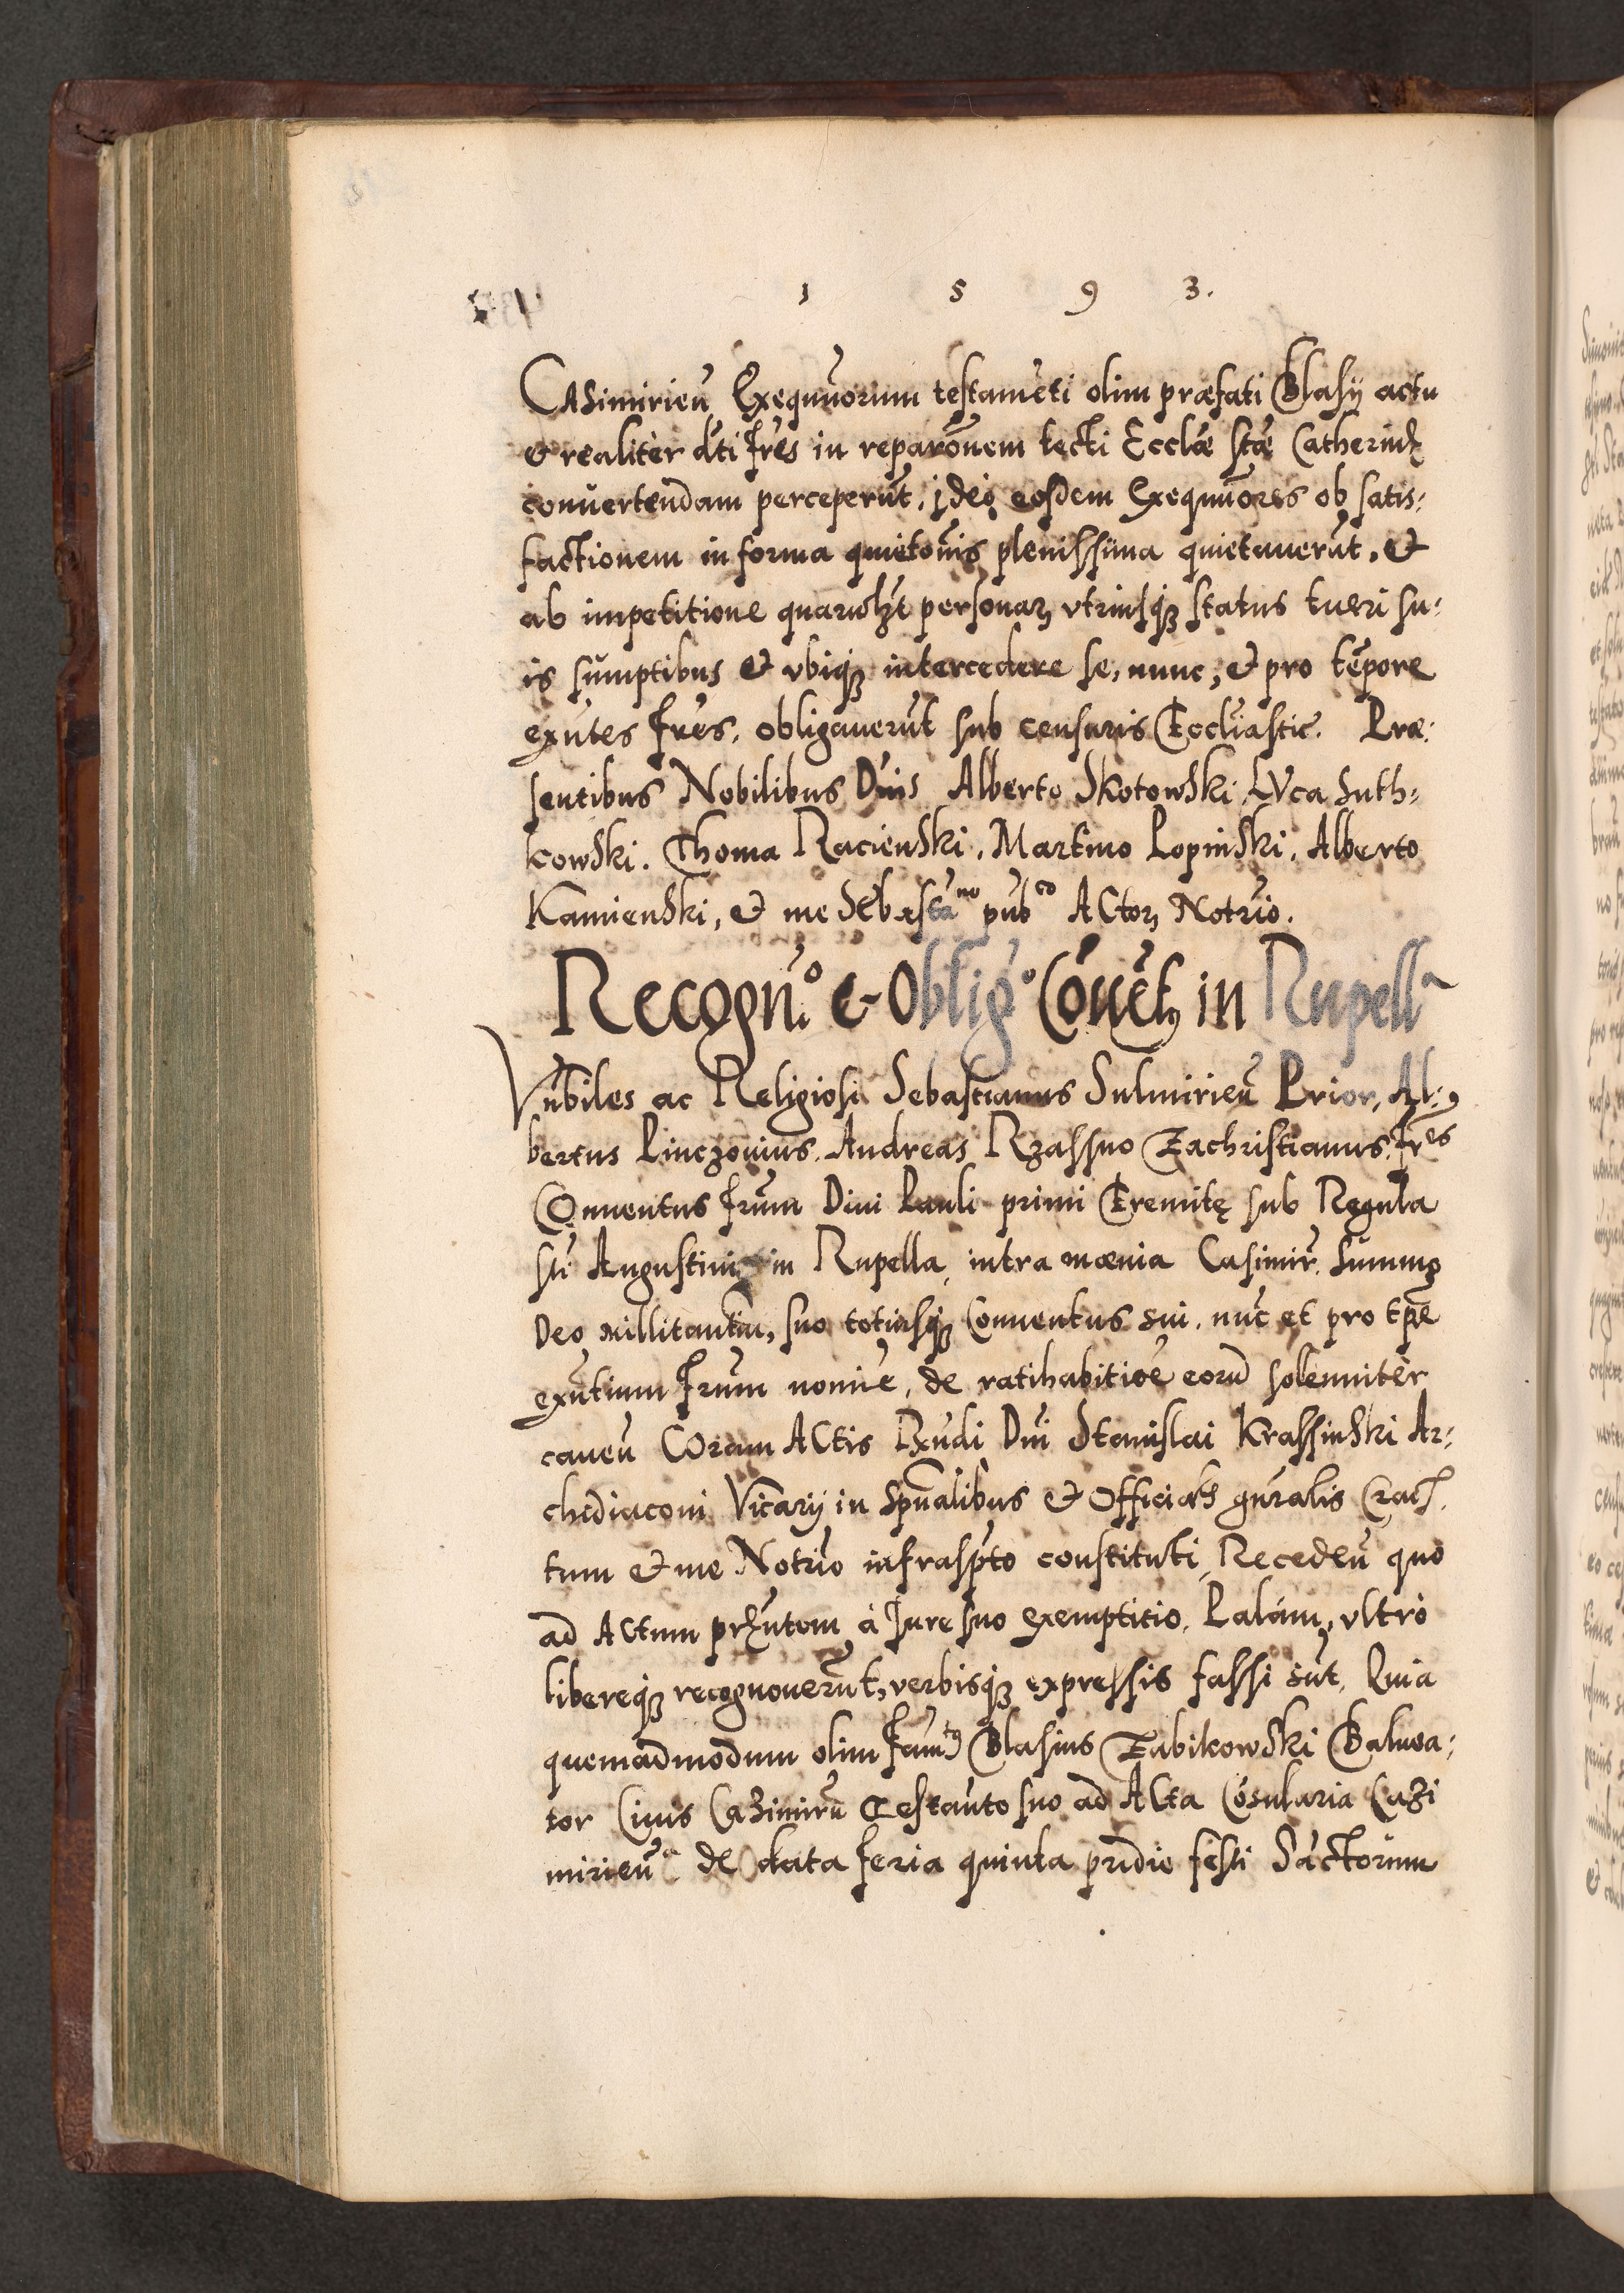 1 5 9 3.
Casimirien̄ Exequutorum testamēti olim præfati Blasij actu
& realiter dti frēs in reparōnem tecti Ecclæ stæ Catherinę
convertendam perceperūt, ideo eosdem Exequutores ob satis:
factionem in forma quietōnis plenissima quietaverūt, &
ab impetitione quarūcꝫt personarꝫ vtriusqꝫ status tueri su:
is sumptibus & vbiqꝫ intercedere se, nunc, & pro tēpore
exn̄tes frēs, obligaverūt sub censuris Eccliastic. Præ:
sentibus Nobilibus Dnis Alberto Skotowski Lvca Suth:
kowski. Thoma Racienski, Martino Lopinski, Alberto
Kamienski, & me Sebastiano pubco Actorꝫ Notrio.
Recogn.o & Oblig.o Cōuēt9 in Rupella
Vn̄biles ac Religiosi Sebastianus Sulmirien̄ Prior, Al:
bertus Pinczovius. Andreas Rzassno Zachristianus. Fres
Conuentus frum Diui Pauli primi Eremitę sub Regula
sti Augustini in Rupella, intra mœnia Casimir. Summo
Deo millitantiū, suo totiusqꝫ Conuentus sui, nūc et pro tpe
exn̄tium frum nomīe, de ratihabitiōe eorū solenniter
caven̄ Coram Actis Rx̄ndi Dni Stanislai Krassinski Ar:
chediaconi Vicarij in Spn̄alibus & Officialis gn̄ralis Crac.
tum & me Notrio infraspto constituti, Receden̄ quo
ad Actum prn̄tem à Jure suo exemptitio, Palám, vltro
libereqꝫ recognouerūt, verbisqꝫ expressis fassi sūt, Quia
quemadmodum olim famt9 Blasius Zabikowski Balnea:
tor Ciuis Cazimirn̄ Testam̄to suo ad Acta Cōsularia Cazi
mirien̄a de data feria quinta pridie festi Sāctorum